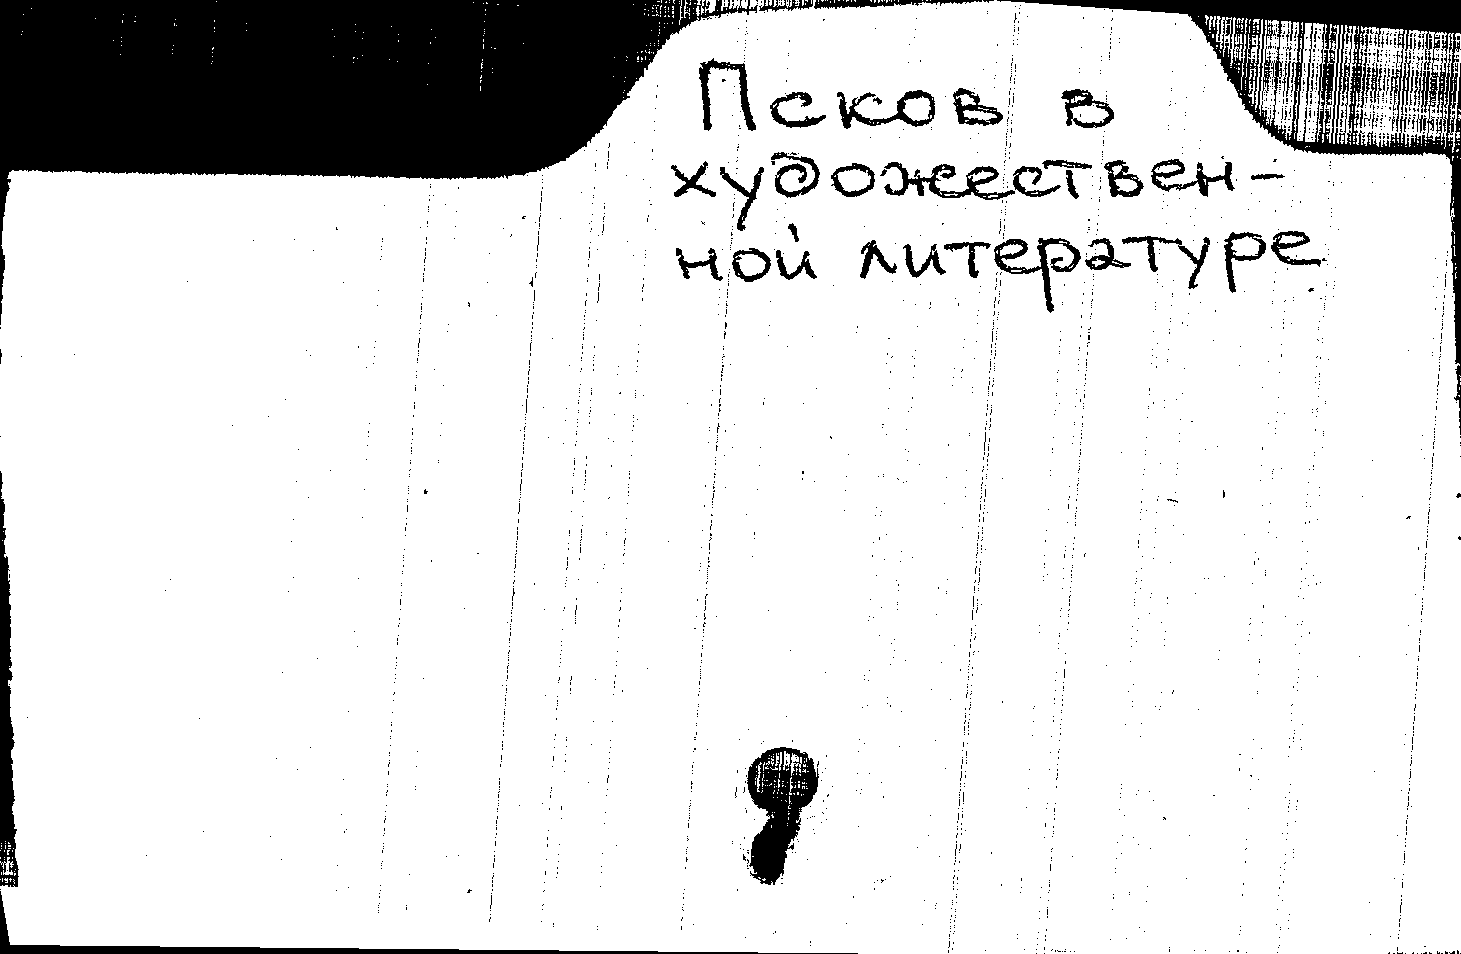 Псков в
художествен-
ной литературе